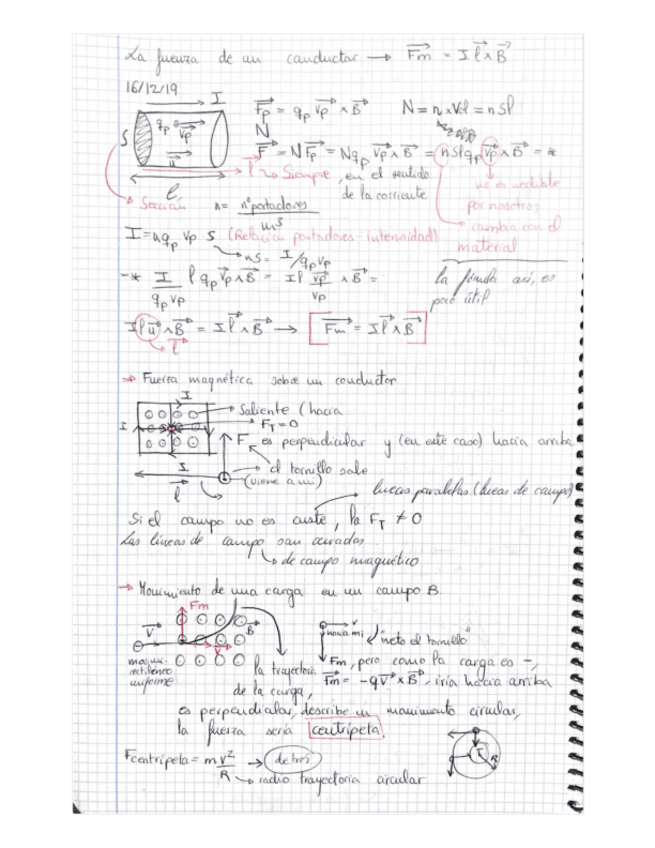 La fuerza de un conductor → Fm = I l x B
16/12/19
I
Fp = qp vp x B N = n x Vol = n S l
S qp vp
F = N Fp = N qp vp x B = n S l qp vp x B = *
u
l → Siempre, en el sentido
de la corriente
no es medible
por nosotros
l
Sección n = nº portadores / m³
cambia con el
material
I = n qp vp S (Relación portadores - intensidad)
nS = I / qp vp
* I / qp vp l qp vp x B = I l vp / vp x B =
la fórmula así, es
poco útil
I l u x B = I l x B → Fm = I l x B
l
→ Fuerza magnética sobre un conductor
I
Saliente (hacia
I F_T = 0
F es perpendicular y (en este caso) hacia arriba
I el tornillo sale
(viene a mí)
l líneas paralelas (líneas de campo)
Si el campo no es , la F_T ≠ 0
Las líneas de campo son cerradas
de campo magnético
→ Movimiento de una carga en un campo B.
Fm
V B v
hacia mí "meto el tornillo"
V
movimi.
rectilíneo
uniforme
la trayectoria Fm, pero como la carga es -,
de la carga, Fm = -q V x B, iría hacia arriba
es perpendicular, describe un movimiento circular,
la fuerza sería centrípeta.
Fcentrípeta = m v² / R →
R
radio trayectoria circular